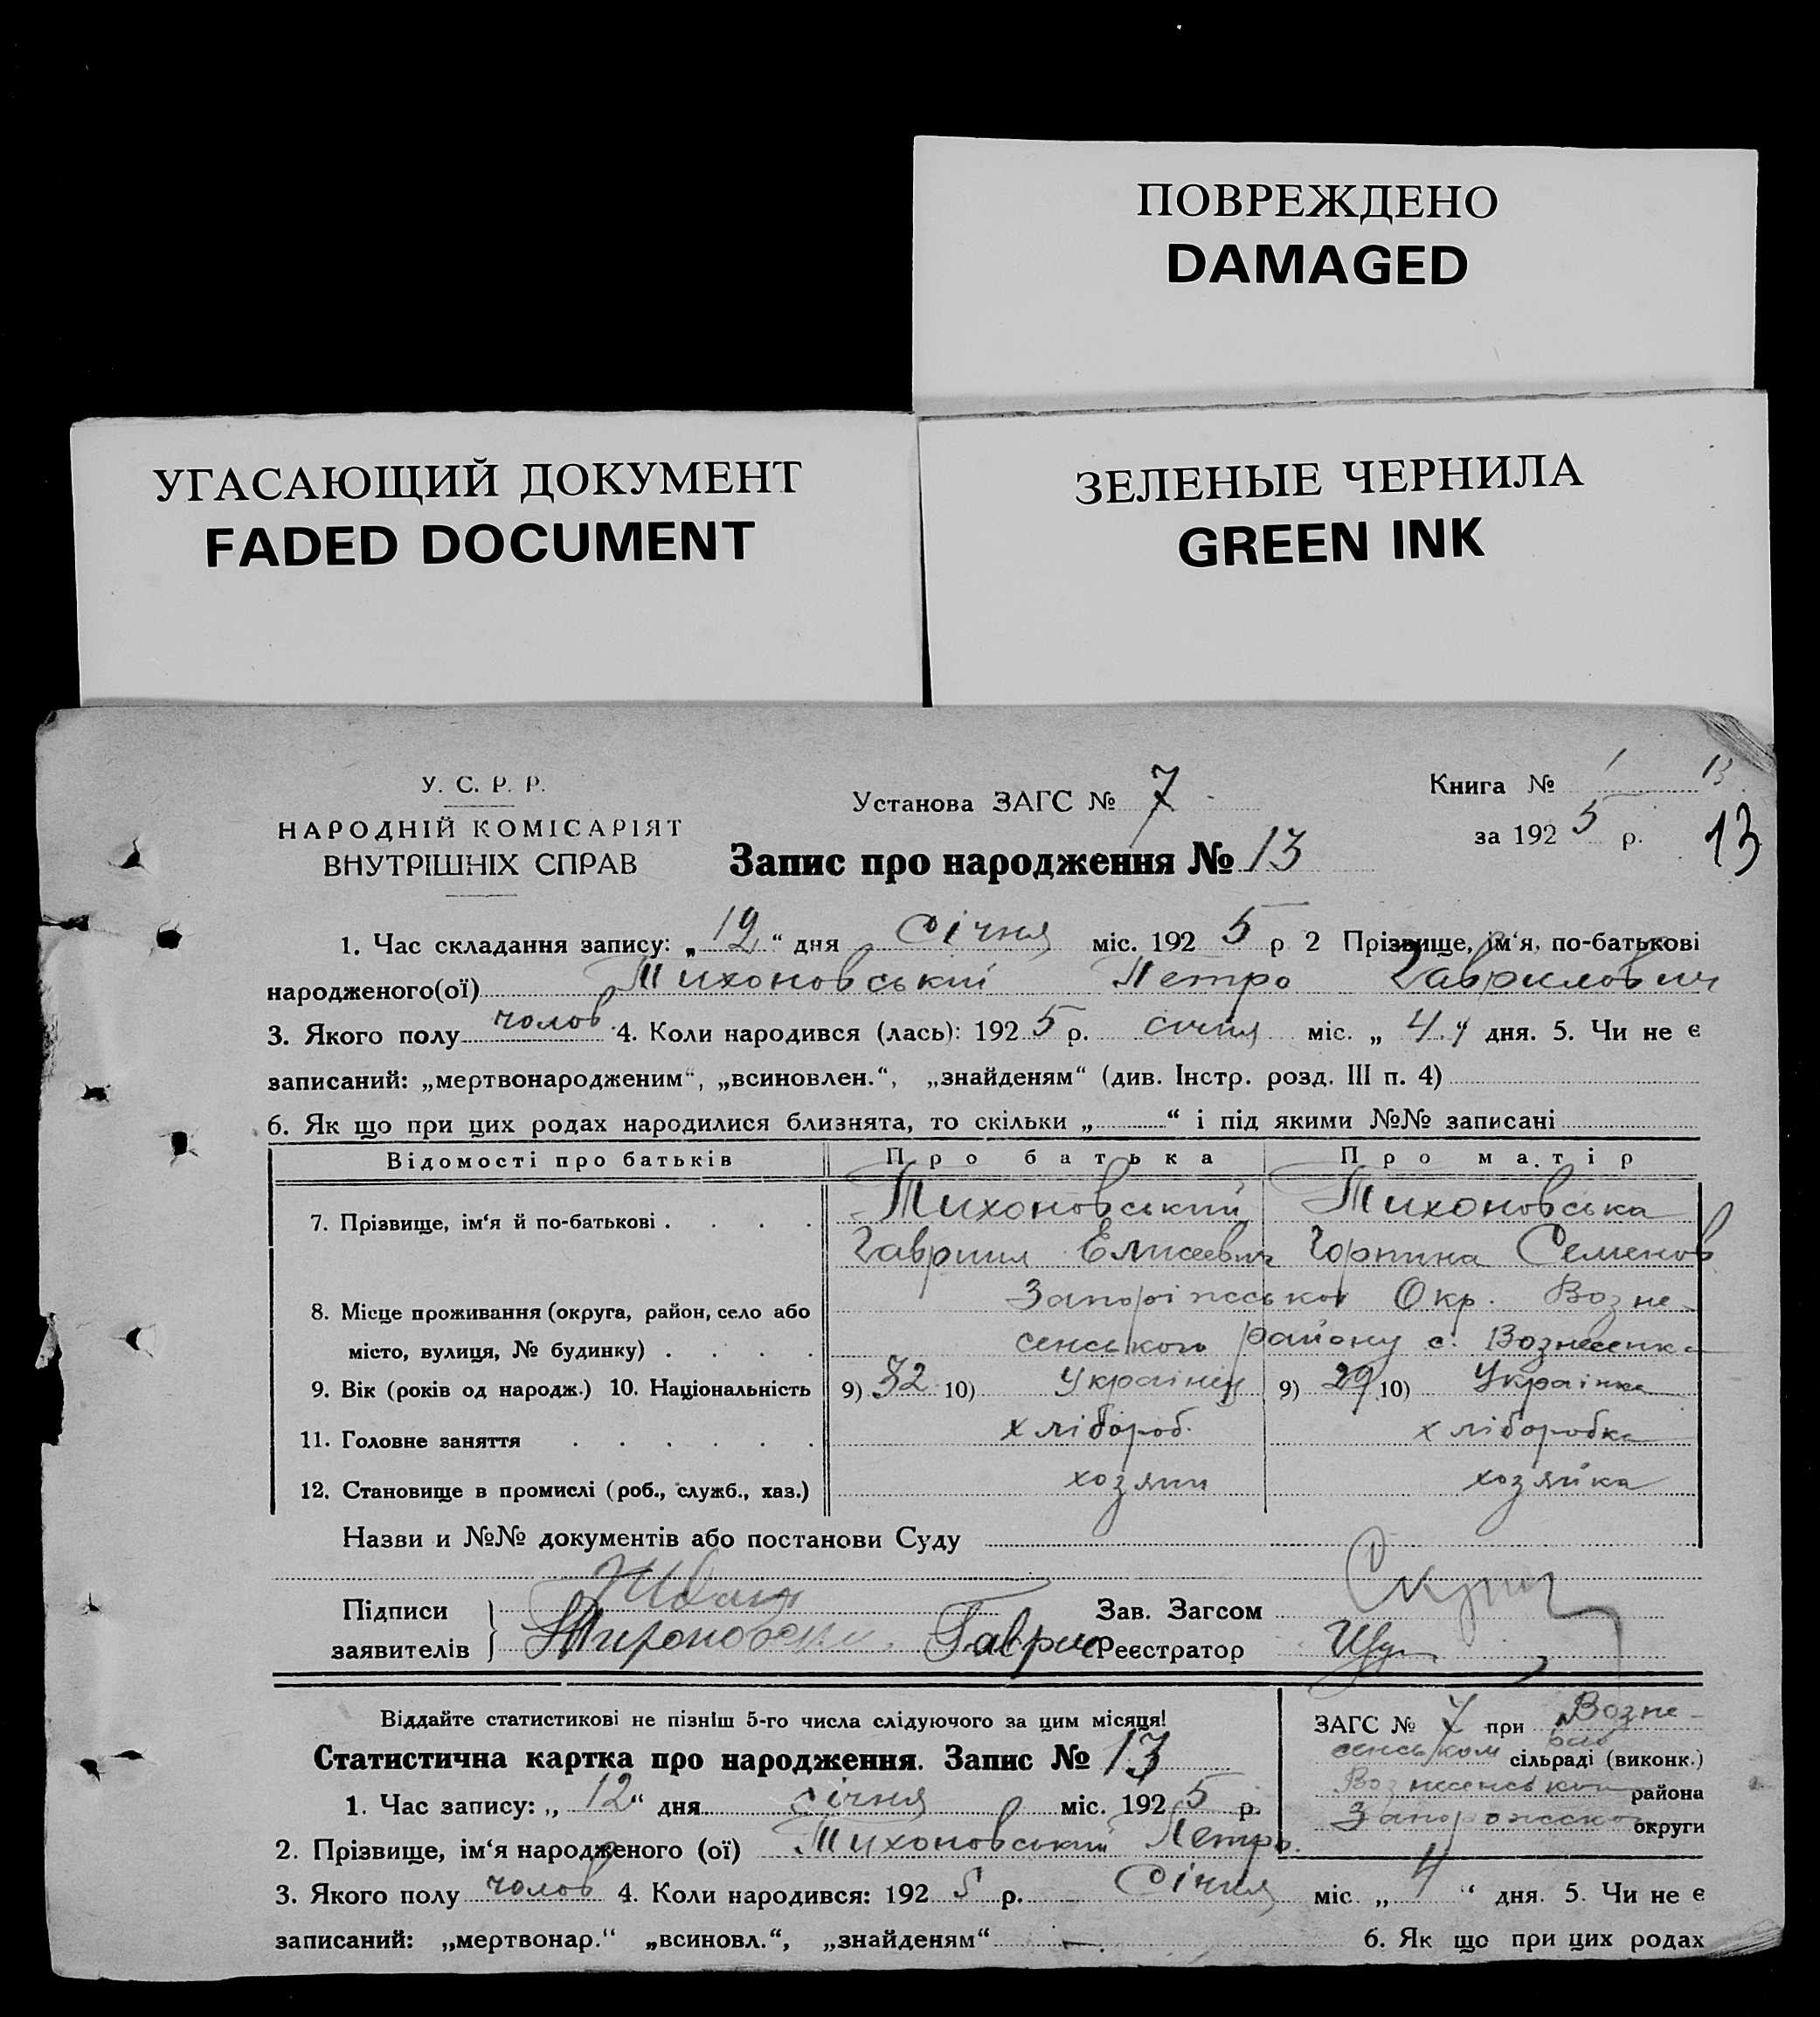 ПОВРЕЖДЕНО
DAMAGED
УГАСАЮЩИЙ ДОКУМЕНТ
FADED DOCUMENT
ЗЕЛЕНЫЕ ЧЕРНИЛА
GREEN INK
У. С. Р. Р.
НАРОДНІЙ КОМІСАРІЯТ
ВНУТРІШНІХ СПРАВ
Установа ЗАГС № 7
Запис про народження № 13
Книга № 1 13
за 192 5 р. 13
1. Час складання запису: „ 12 “ дня січня міс. 192 5 р 2 Прізвище, ім‘я, по-батькові
народженого(ої) Тихоновський Петро Гаврилович
3. Якого полу чолов. 4. Коли народився (лась): 192 5 р. січня міс. „ 4 “ дня. 5. Чи не є
записаний: „мертвонародженим“, „всиновлен.“, „знайденям“ (див. Інстр. розд. III п. 4)
6. Як що при цих родах народилися близнята, то скільки „ “ і під якими №№ записані
Відомості про батьків Про батька Про матір
7. Прізвище, ім‘я й по-батькові . . . . Тихоновський Тихоновська
Гавриил Елисеевич Горпина Семенов
8. Місце проживання (округа, район, село або Запоріжської Окр. Возне-
місто, вулиця, № будинку) . . . . сенського району с. Вознесенка
9. Вік (років од народж.) 10. Національність 9) 32 10) Українец 9) 29 10) Українка
11. Головне заняття . . . . . . хлібороб. хліборобка
12. Становище в промислі (роб., служб., хаз.) хозяин хозяйка
Назви и №№ документів або постанови Суду
Підписи Зав. Загсом
заявителів Тихоновски Гаврил Реєстратор
Віддайте статистикові не пізніш 5-го числа слідуючого за цим місяця!
Статистична картка про народження. Запис № 13
1. Час запису: „ 12 “ дня січня міс. 192 5 р.
2. Прізвище, ім‘я народженого (ої) Тихоновський Петро.
ЗАГС № 7 при Возне-
сенськом сільраді (виконк.)
Вознесенського района
Запорожской округи
3. Якого полу чолов 4. Коли народився: 192 5 р. Січня міс. „ 4 “ дня. 5. Чи не є
записаний: „мертвонар.“ „всиновл.“, „знайденям“ —. 6. Як що при цих родах